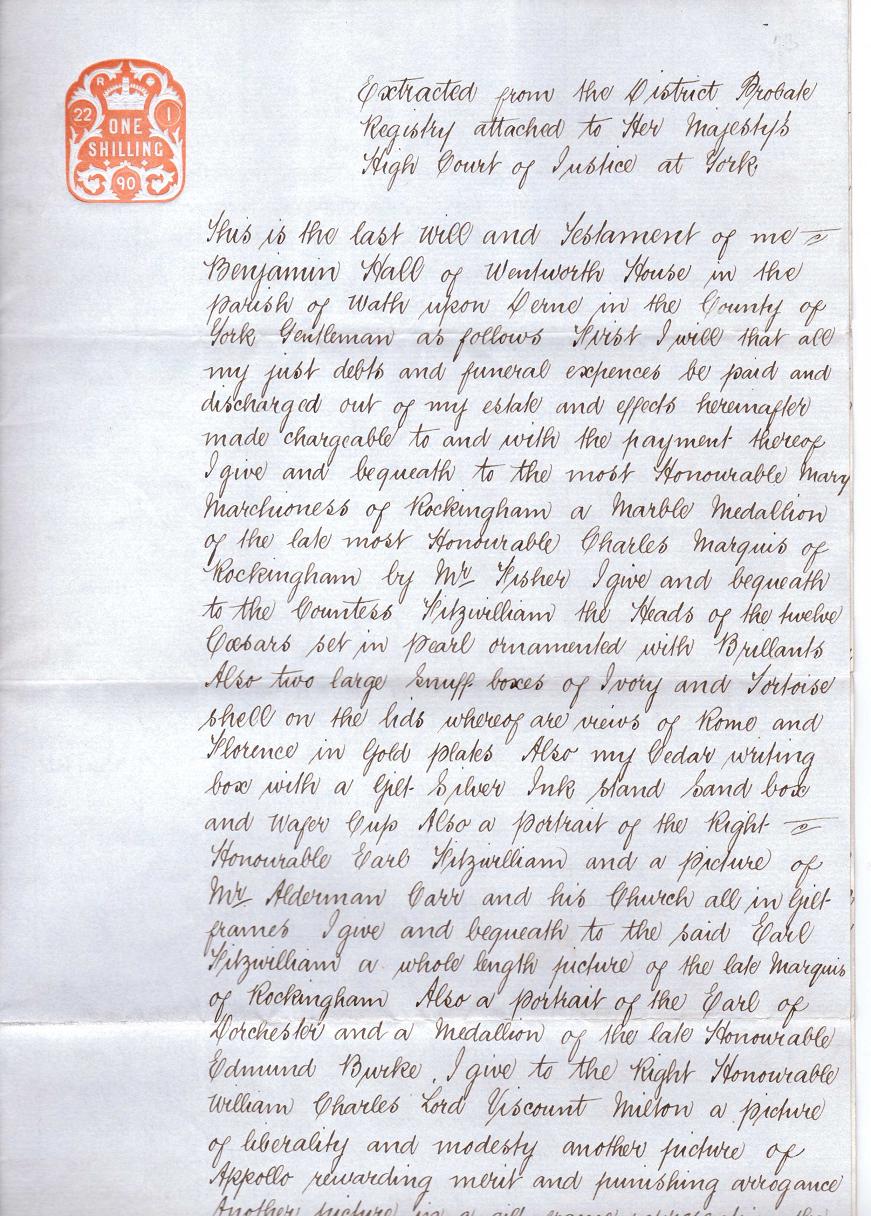 R
22 1
ONE
SHILLING
90
Extracted from the District Probate
Registry attached to Her Majesty's
High Court of Justice at York
This is the last will and Testament of me
Benjamin Hall of Wentworth House in the
parish of Wath upon Derne in the County of
York Gentleman as follows First I will that all
my just debts and funeral expences be paid and
discharged out of my estate and effects hereinafter
made chargeable to and with the payment thereof
I give and bequeath to the most Honourable Mary
Marchioness of Rockingham a Marble Medallion
of the late most Honourable Charles Marquis of
Rockingham by Mr Fisher I give and bequeath
to the Countess Fitzwilliam the Heads of the twelve
Cœsars set in pearl ornamented with Brillants
Also two large Snuff boxes of Ivory and Tortoise
shell on the lids whereof are views of Rome and
Florence in Gold plates Also my Cedar writing
box with a Gilt Silver Ink stand Sand box
and Wafer Cup Also a portrait of the Right
Honourable Earl Fitzwilliam and a picture of
Mr Alderman Carr and his Church all in Gilt
frames I give and bequeath to the said Earl
Fitzwilliam a whole length picture of the late Marquis
of Rockingham Also a portrait of the Earl of
Dorchester and a Medallion of the late Honourable
Edmund Burke. I give to the Right Honourable
William Charles Lord Viscount Milton a picture
of liberality and modesty another picture of
Appollo rewarding merit and punishing arrogance
Another picture in a gilt frame the